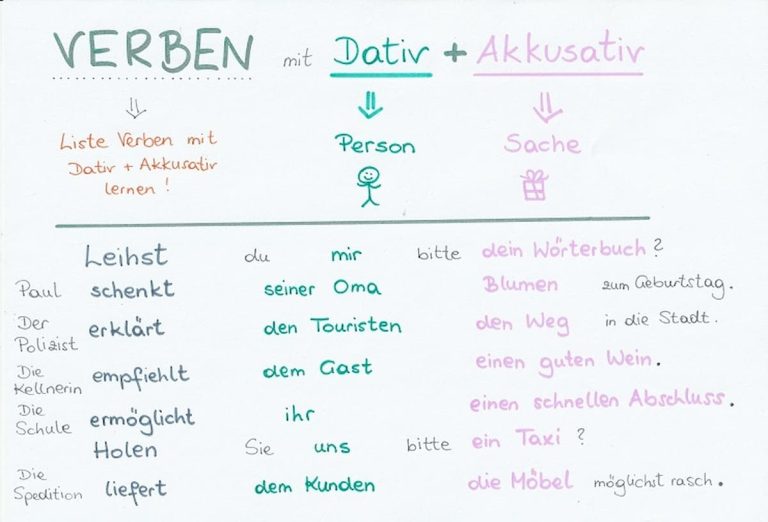 VERBEN mit Dativ + Akkusativ
Liste Verben mit
Dativ + Akkusativ
lernen!
Person
Sache
Leihst du mir bitte dein Wörterbuch?
Paul schenkt seiner Oma Blumen zum Geburtstag.
Der Polizist erklärt den Touristen den Weg in die Stadt.
Die Kellnerin empfiehlt dem Gast einen guten Wein.
Die Schule ermöglicht ihr einen schnellen Abschluss.
Holen Sie uns bitte ein Taxi?
Die Spedition liefert dem Kunden die Möbel möglichst rasch.